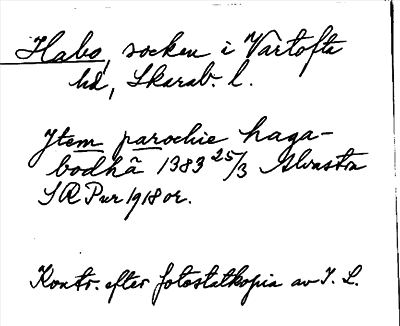 Habo, socken i Vartofta
hd, Skarab. l.
Ytem parochie haga-
bodhā 1383 25/3 Alvastra
SRPur 1918 or.
Kontr. efter fotostatkopia av I. L.